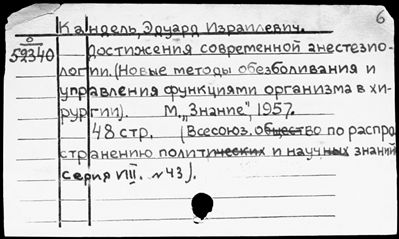 6
Кандель, Эдуард Израилевич.
8
52340
Достижения современной анестезио-
логии. (Новые методы обезболивания и
управления функциями организма в хи-
рургии). М., „Знание", 1957.
48 стр. (Всесоюз. общество по распро
странению политических и научных знаний
серия VIII. №43).